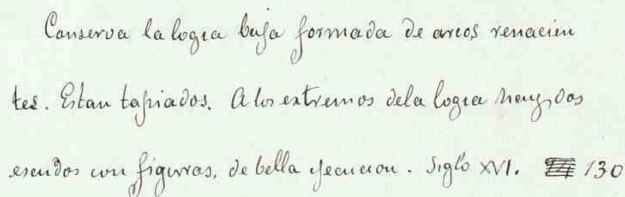 Conserva la logia baja formada de arcos renacien
tes. Estan tapiados. A los extremos dela logia hay dos
escudos con figuras, de bella jecucion. Siglo XVI. 130